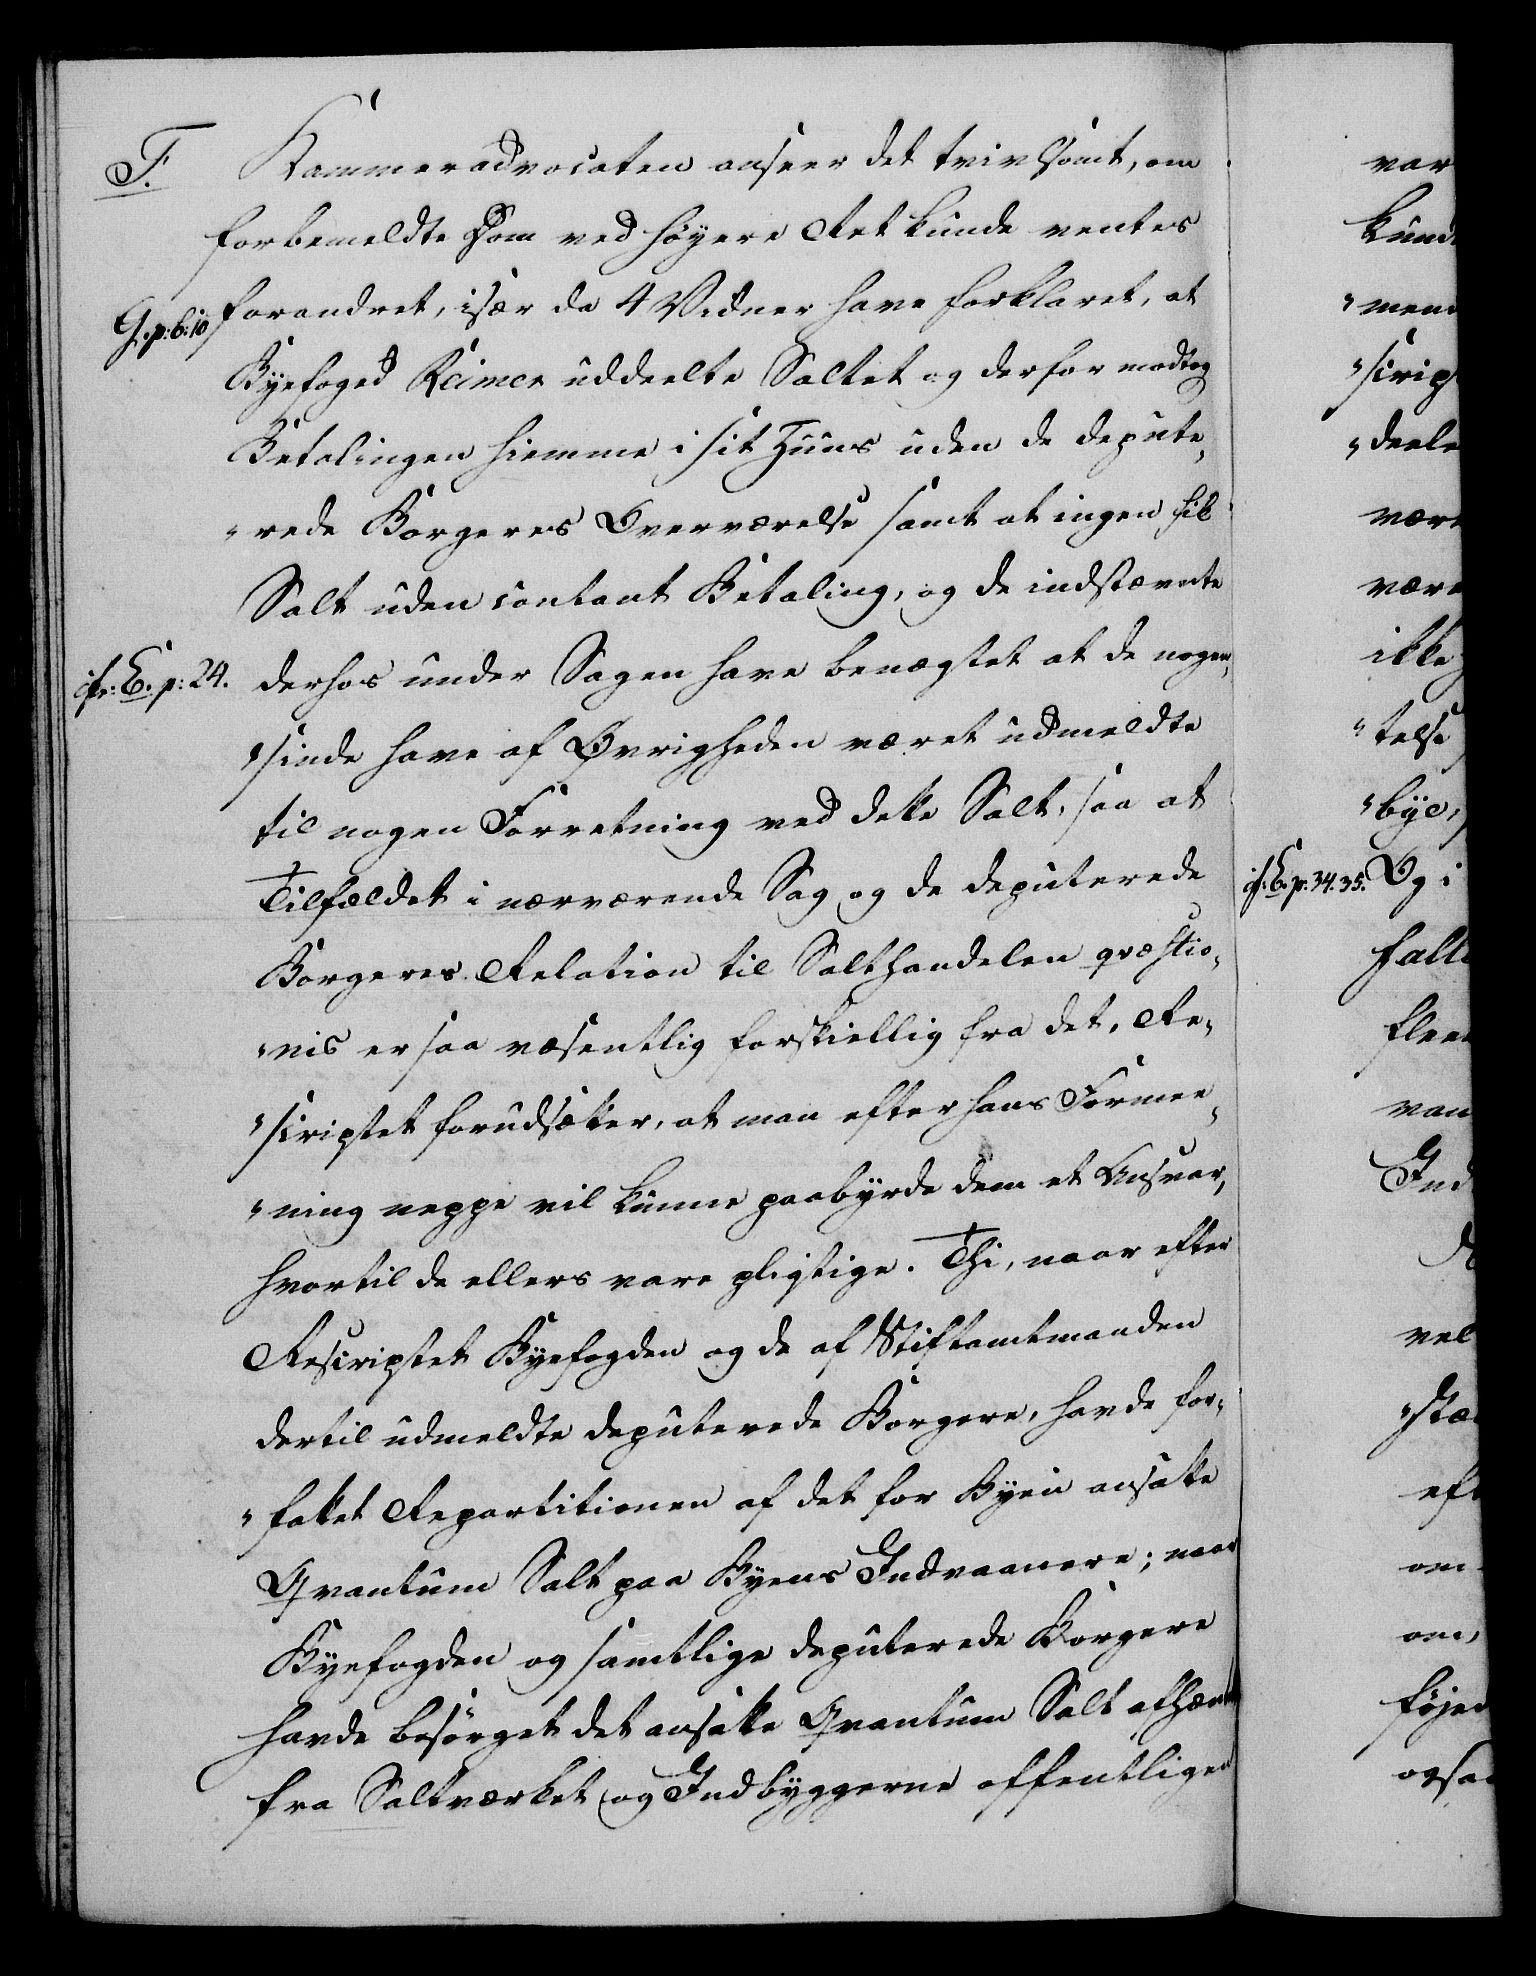 F. Kammeradvocaten anseer det tvivlsomt, om
forbemeldte Dom ved høyere Ret kunde ventes
G. p: 6: 10 forandret, især da 4 Vidner have forklaret, at
Byefoged Reimer uddeelte Saltet og derfor modtog
Betalingen hiemme i sit Huus uden de depute„
„rede Borgeres Overværelse samt at ingen fik
Salt uden contant Betaling, og de indstævnte
cfr: E. p: 24. derhos under Sagen have benægtet at de nogen„
„sinde have af Øvrigheden været udmeldte
til nogen Forretning ved dette Salt, saa at
Tilfældet i nærværende Sag og de deputerede
Borgeres Relation til Salthandelen qvæstio„
„nis er saa væsentlig forskiellig fra det, Re„
„scriptet forudsætter, at man efter hans Formee„
„ning neppe vil kunne paabyrde dem et Ansvar,
hvortil de ellers vare pligtige. Thi, naar efter
Rescriptet Byefogden og de af Stiftamtmanden
dertil udmeldte deputerede Borgere, havde for„
„fattet Repartitionen af det for Byen ansatte
Qvantum Salt paa Byens Indvaanere; naar
Byefogden og samtlige deputerede Borgere
havde besørget det ansatte Qvantum Salt afhæn
fra Saltværket og Indbyggerne offentligen
var
kund
„men
„scrip
„deele
være
være
ikke
„telse
„bye,
cf. E. p. 34. 35. Og i
fall
fleer
van
Ind
vel
„stæ
eft
om
om,
føjed
ogsaa